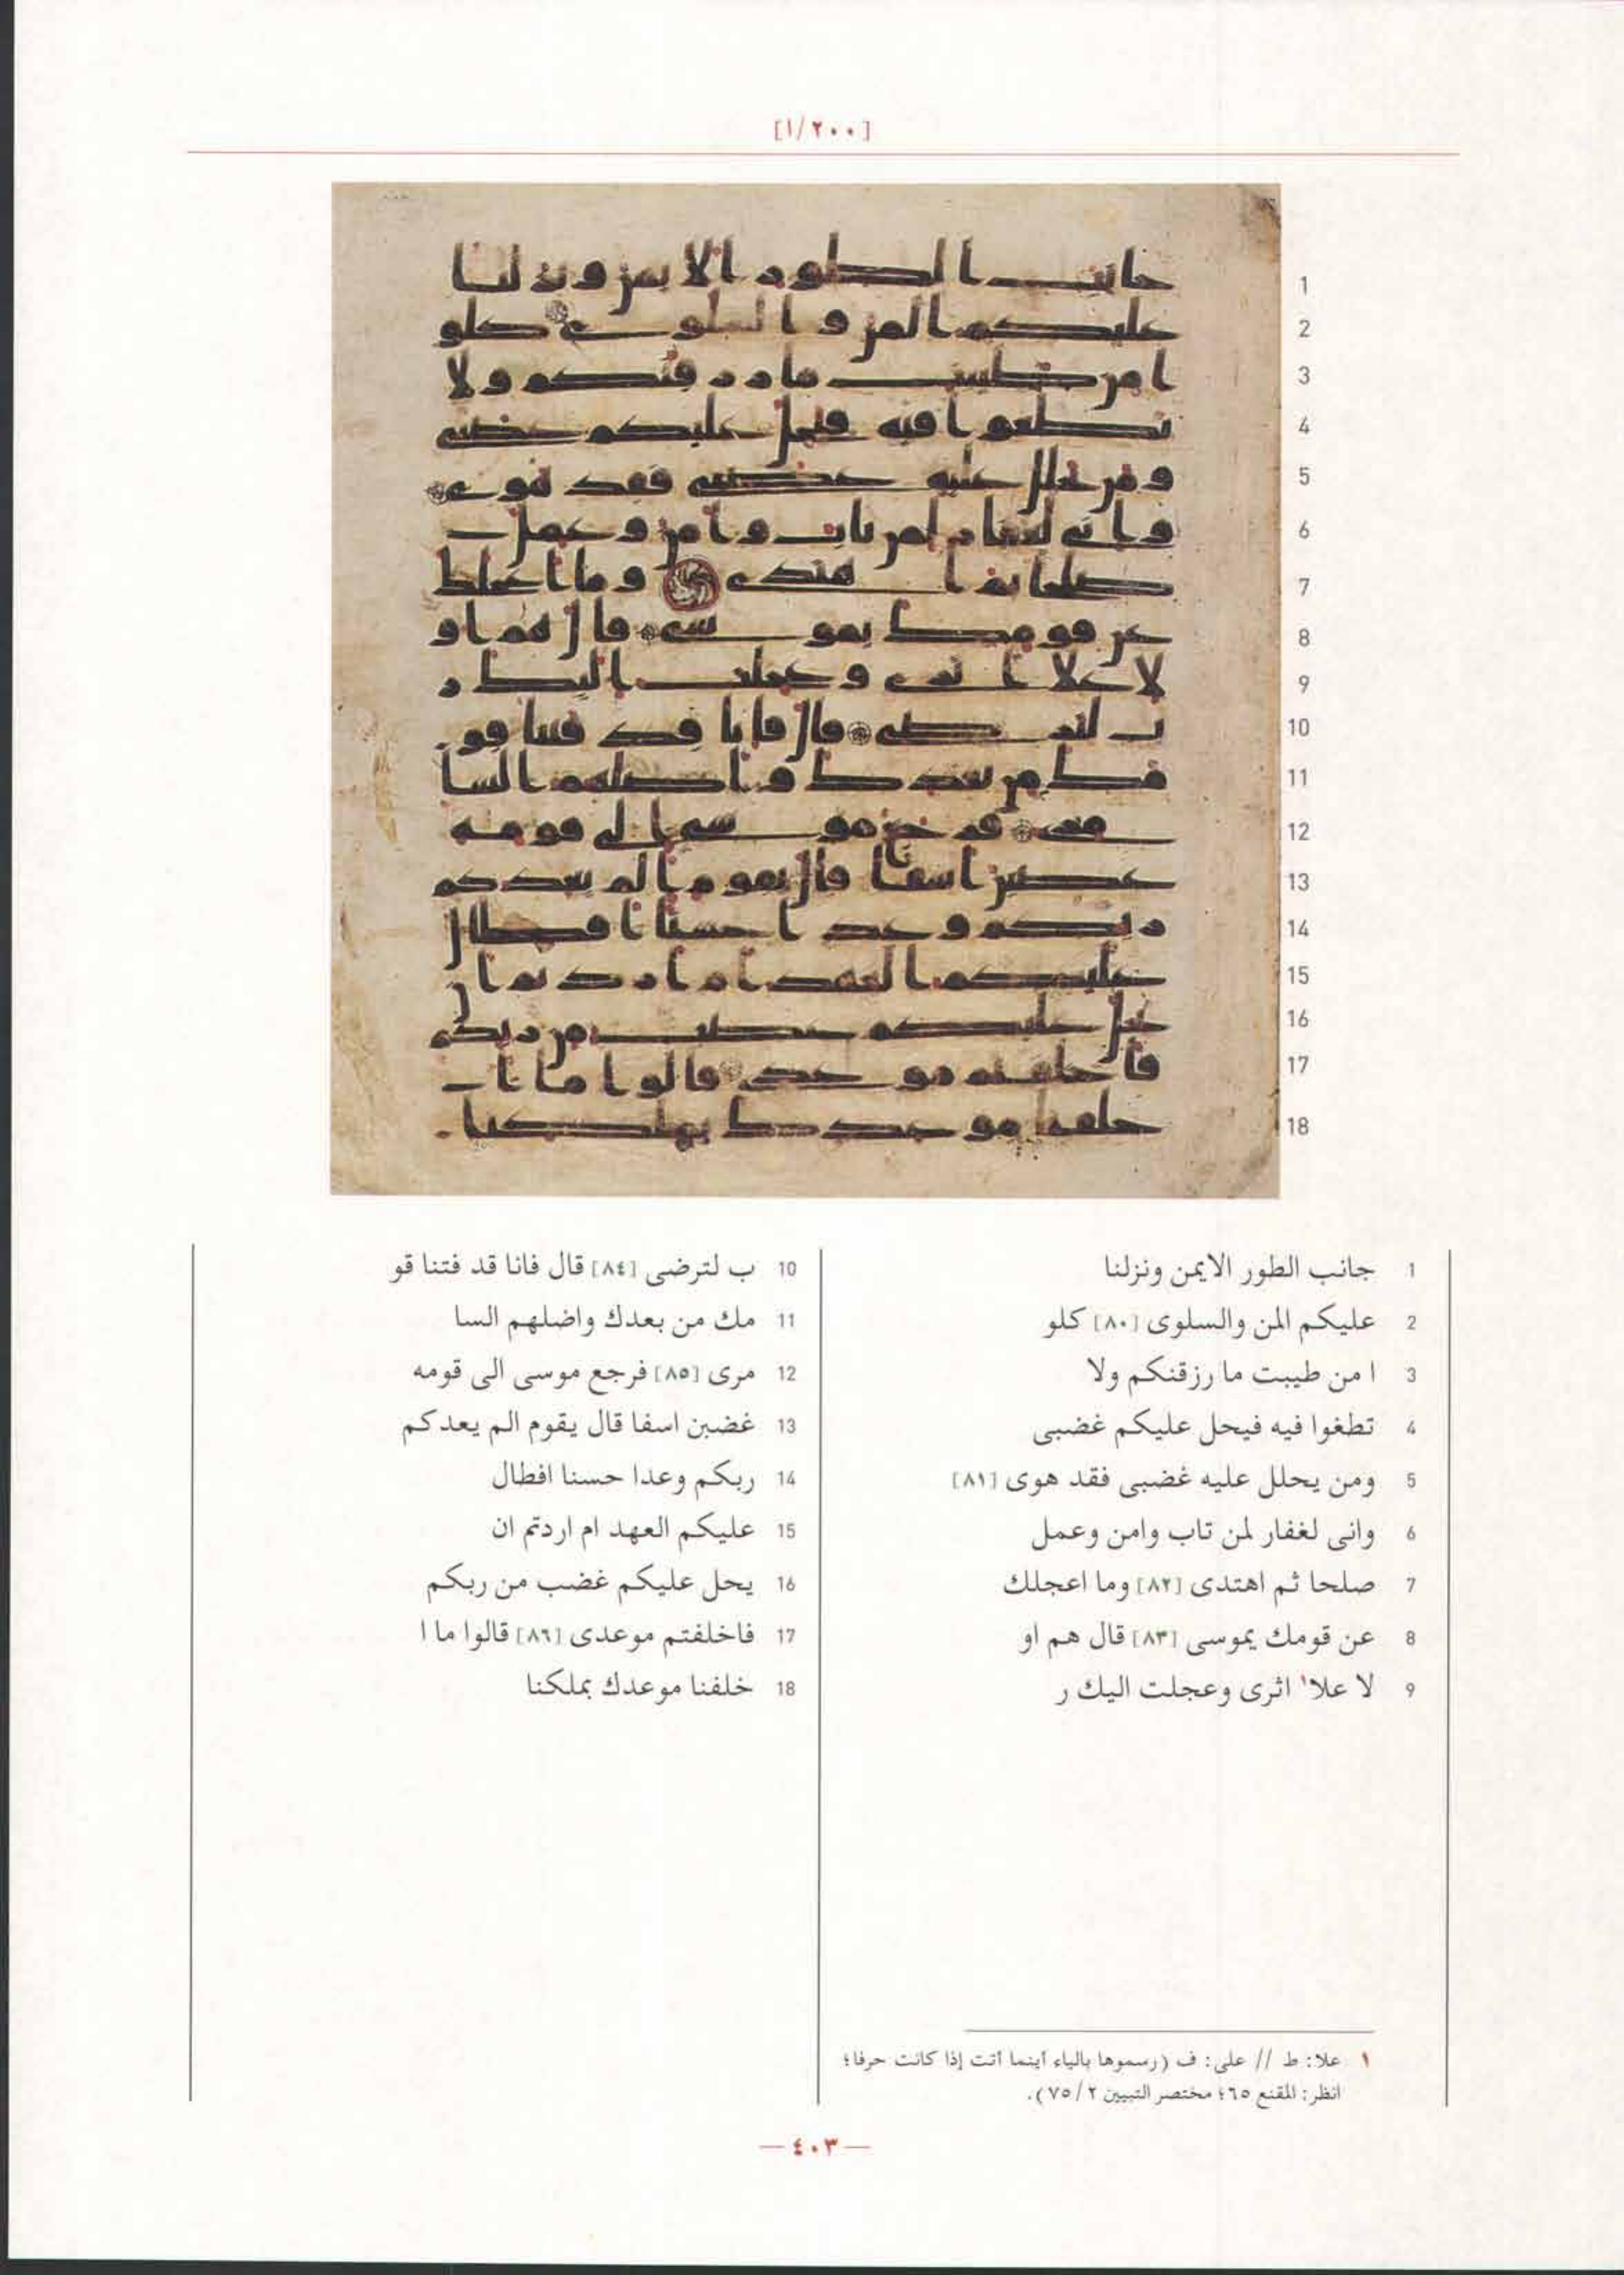 [٢٠٠/١]
1 جانب الطور الايمن ونزلنا
2 عليكم المن والسلوى [٨٠] كلو
3 ا من طيبت ما رزقنكم ولا
4 تطغوا فيه فيحل عليكم غضبى
5 ومن يحلل عليه غضبى فقد هوى [٨١]
6 وانى لغفار لمن تاب وامن وعمل
7 صلحا ثم اهتدى [٨٢] وما اعجلك
8 عن قومك يموسى [٨٣] قال هم او
9 لا علا١ اثرى وعجلت اليك ر
10 ب لترضى [٨٤] قال فانا قد فتنا قو
11 مك من بعدك واضلهم السا
12 مرى [٨٥] فرجع موسى الى قومه
13 غضبن اسفا قال يقوم الم يعدكم
14 ربكم وعدا حسنا افطال
15 عليكم العهد ام اردتم ان
16 يحل عليكم غضب من ربكم
17 فاخلفتم موعدى [٨٦] قالوا ما ا
18 خلفنا موعدك بملكنا
١ علا: ط // على: ف (رسموها بالياء أينما أتت إذا كانت حرفا؛
انظر: المقنع ٦٥؛ مختصر التبيين ٧٥/٢).
— ٤٠٣ —